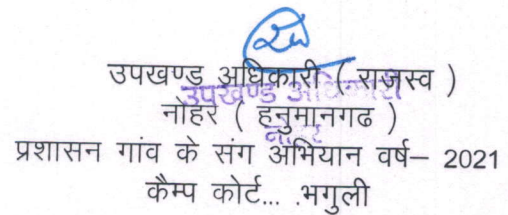 उपखण्ड अधिकारी ( राजस्व )
उपखण्ड अधिकारी
नोहर ( हनुमानगढ )
नोहर
प्रशासन गांव के संग अभियान वर्ष– 2021
कैम्प कोर्ट... .भगुली